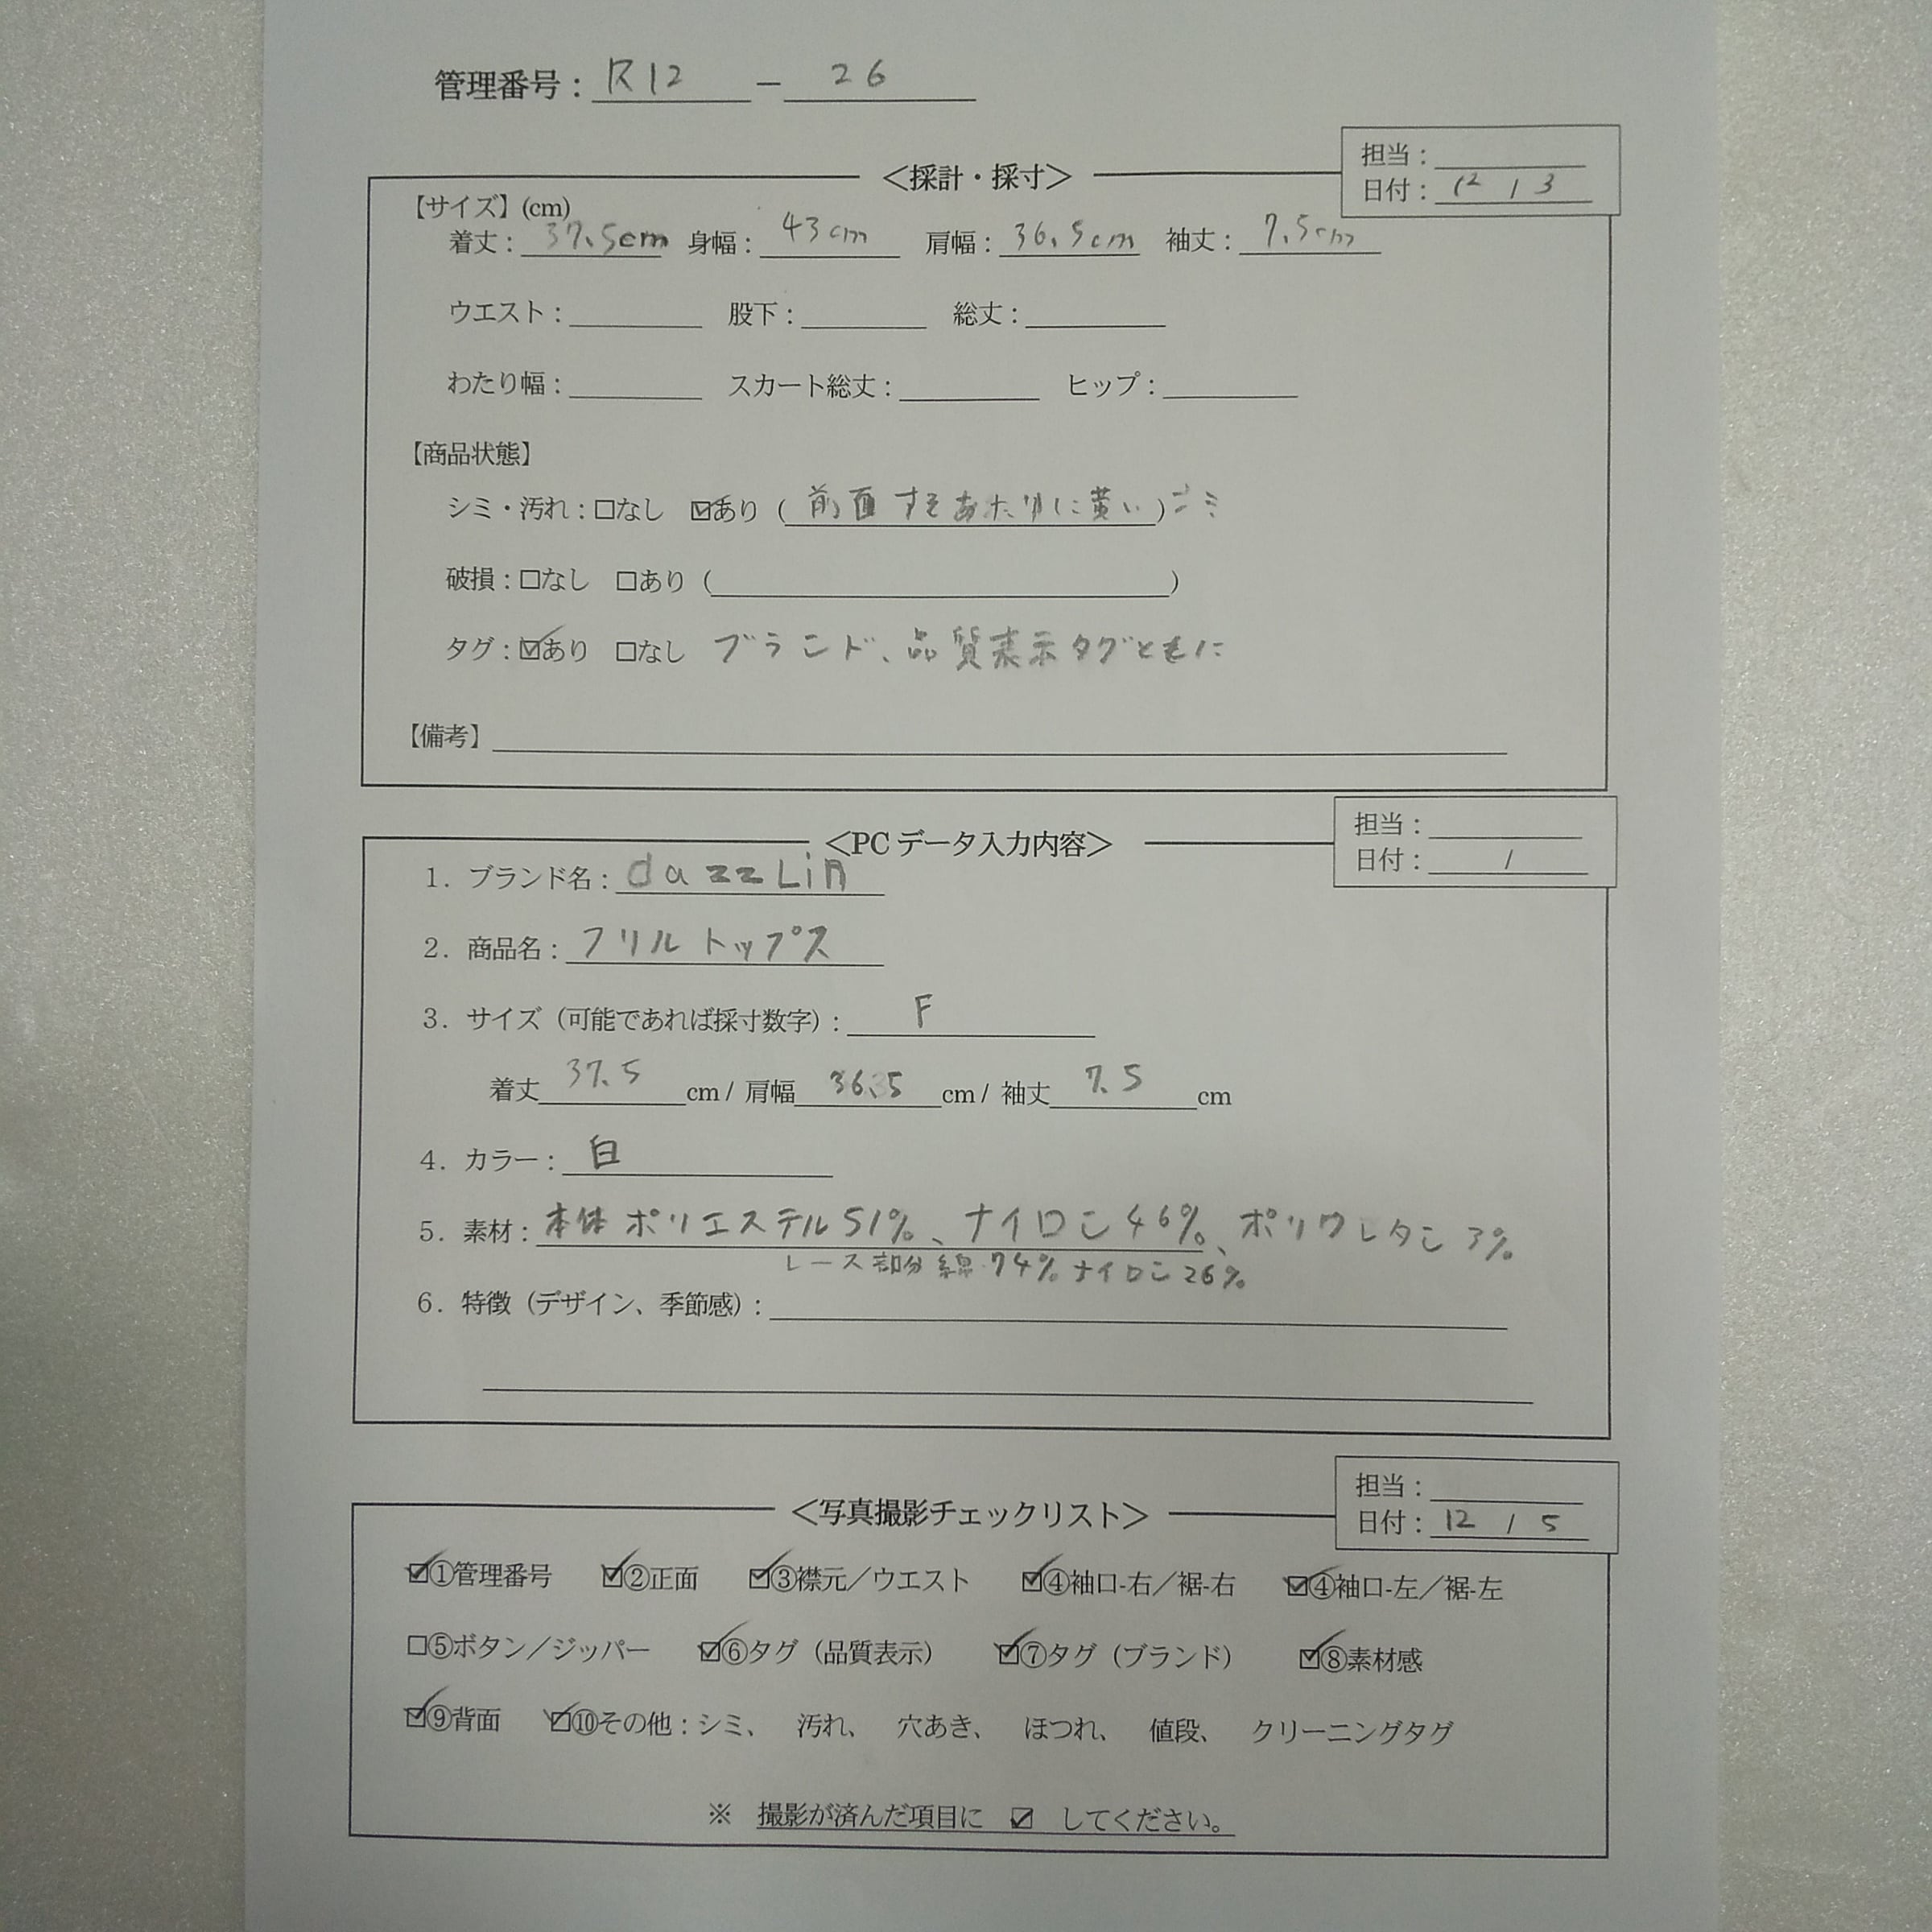 管理番号：R12 － 26
担当：
＜採計・採寸＞
日付：12 / 3
【サイズ】(cm)
着丈：37.5cm 身幅：43cm 肩幅：36.5cm 袖丈：7.5cm
ウエスト： 股下： 総丈：
わたり幅： スカート総丈： ヒップ：
【商品状態】
シミ・汚れ：☐なし ☑あり（前面すそあたりに黄い）シミ
破損：☐なし ☐あり（ ）
タグ：☑あり ☐なし ブランド、品質表示タグともに
【備考】
担当：
＜PCデータ入力内容＞
日付： /
1．ブランド名：dazzLin
2．商品名：フリルトップス
3．サイズ（可能であれば採寸数字）：F
着丈 37.5 cm / 肩幅 36.5 cm / 袖丈 7.5 cm
4．カラー：白
5．素材：本体 ポリエステル51%、ナイロン46%、ポリウレタン3%
レース部分 綿74% ナイロン26%
6．特徴（デザイン、季節感）：
担当：
＜写真撮影チェックリスト＞
日付：12 / 5
☑①管理番号 ☑②正面 ☑③襟元／ウエスト ☑④袖口-右／裾-右 ☑④袖口-左／裾-左
☐⑤ボタン／ジッパー ☑⑥タグ（品質表示） ☑⑦タグ（ブランド） ☑⑧素材感
☑⑨背面 ☑⑩その他：シミ、 汚れ、 穴あき、 ほつれ、 値段、 クリーニングタグ
※ 撮影が済んだ項目に ☑ してください。